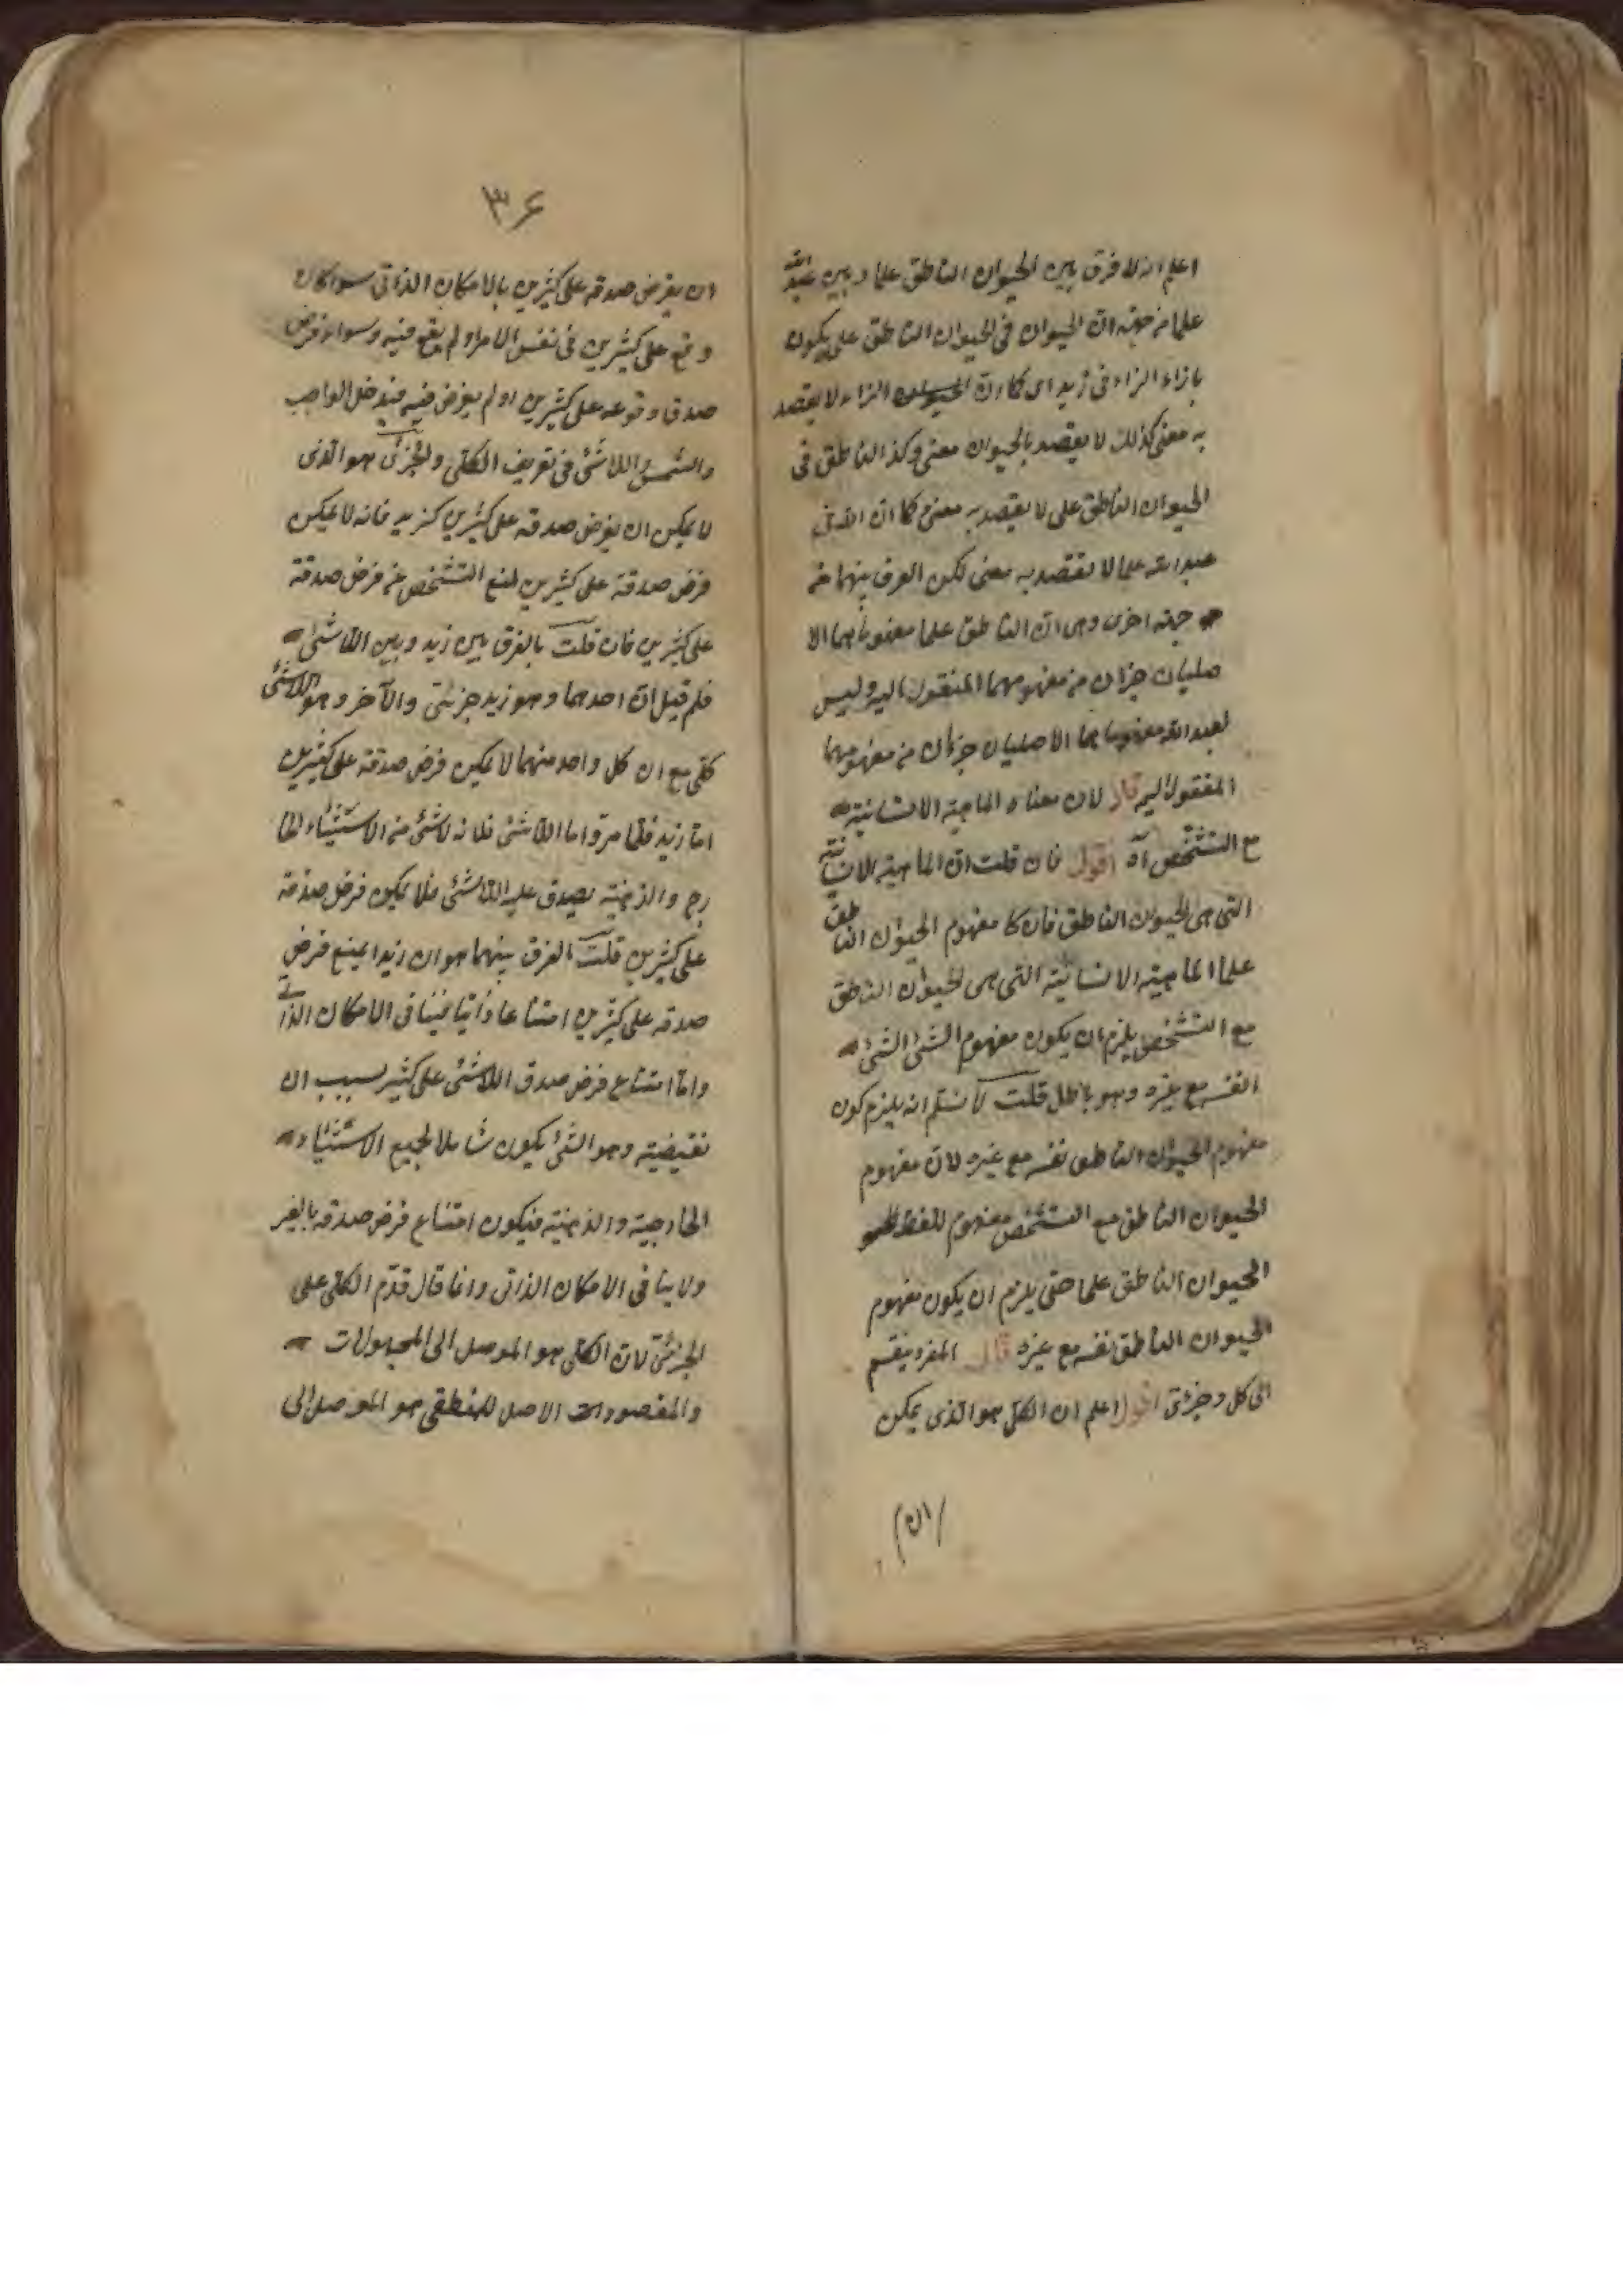 اعلم انه لا فرق بين الحيوان الناطق علما وبين عبد الله
علما من جهة ان الحيوان في الحيوان الناطق علما يكون
بازاء الزاء في زيد اى كما ان الزاء لا يقصد
به معنى كذلك لا يقصد بالحيوان معنى وكذا الناطق في
الحيوان الناطق على لا يقصد به معنى كما ان الله في
عبد الله علما لا يقصد به معنى لكن الفرق بينهما من
جهة اخرى وهى ان الناطق علما مفهوماهما الا
صليان جزءان من مفهومهما المنقول اليه وليس
لعبد الله مفهوماهما الاصليان جزءان من مفهومهما
المنقول اليه قال لان معناه الماهية الانسانية
مع التشخص آه اقول فان قلت ان الماهية الانسانية
التى هى الحيوان الناطق فان كا مفهوم الحيوان الناطق
علما الماهية الانسانية التى هى الحيوان الناطق
مع التشخص يلزم ان يكون مفهوم الشئ الشئ
النفسه مع غيره وهو باطل قلت لا نسلم انه يلزم كون
مفهوم الحيوان الناطق نفسه مع غيره لان مفهوم
الحيوان الناطق مع التشخص مفهوم للفظ
الحيوان الناطق علما حتى يلزم ان يكون مفهوم
الحيوان الناطق نفسه مع غيره قال المفرد ينقسم
الى كلى وجزئى اقول اعلم ان الكلى هو الذى يمكن
ان
۳۶
ان يفرض صدقه على كثيرين بالامكان الذاتى سواء كان
وقع على كثيرين فى نفس الامر او لم يقع فيه وسواء فرض
صدق وقوعه على كثيرين او لم يفرض فيه فيدخل الواجب
والشمس واللاشئ فى تعريف الكلى والجزئى هو الذى
لا يمكن ان يفرض صدقه على كثيرين كزيد فانه لا يمكن
فرض صدقة على كثيرين لمنع التشخص من فرض صدقة
على كثيرين فان قلت بالفرق بين زيد وبين اللاشئ
فلم قيل ان احدهما وهو زيد جزئى والآخر وهو اللاشئ
كلى مع ان كل واحد منهما لا يمكن فرض صدقة على كثيرين
اما زيد فلما مر واما اللاشئ فلانه لا شئ من الاشياء الخا
رج والذهنية يصدق عليه اللاشئ فلا يمكن فرض صدقة
على كثيرين قلت الفرق بينهما هو ان زيدا يمنع فرض
صدقه على كثيرين امتناعا ذاتيا فينافى الامكان الذاتى
واما امتناع فرض صدق اللاشئ على كثير بسبب ان
نقيضيته وهو الشئ يكون شاملا لجميع الاشياء
الخارجية والذهنية فيكون امتناع فرض صدقه بالغير
ولا ينافى الامكان الذاتى وانما قال قدّم الكلى على
الجزئى لان الكلى هو الموصل الى المجهولات
والمقصود الاصل للمنطقى هو الموصل الى